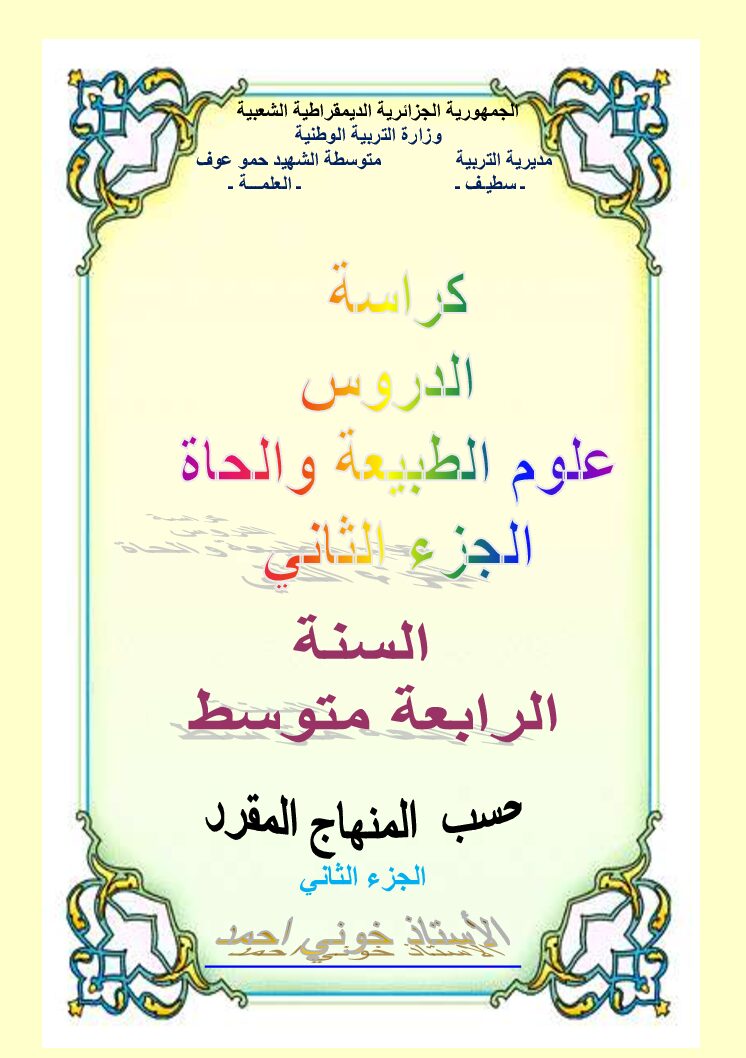 الجمهورية الجزائرية الديمقراطية الشعبية
وزارة التربية الوطنية
مديرية التربية متوسطة الشهيد حمو عوف
ـ سطيـف ـ ـ العلمـــة ـ
كراسة
الدروس
علوم الطبيعة والحاة
الجزء الثاني
السنة
الرابعة متوسط
حسب المنهاج المقرر
الجزء الثاني
الأستاذ خوني احمد